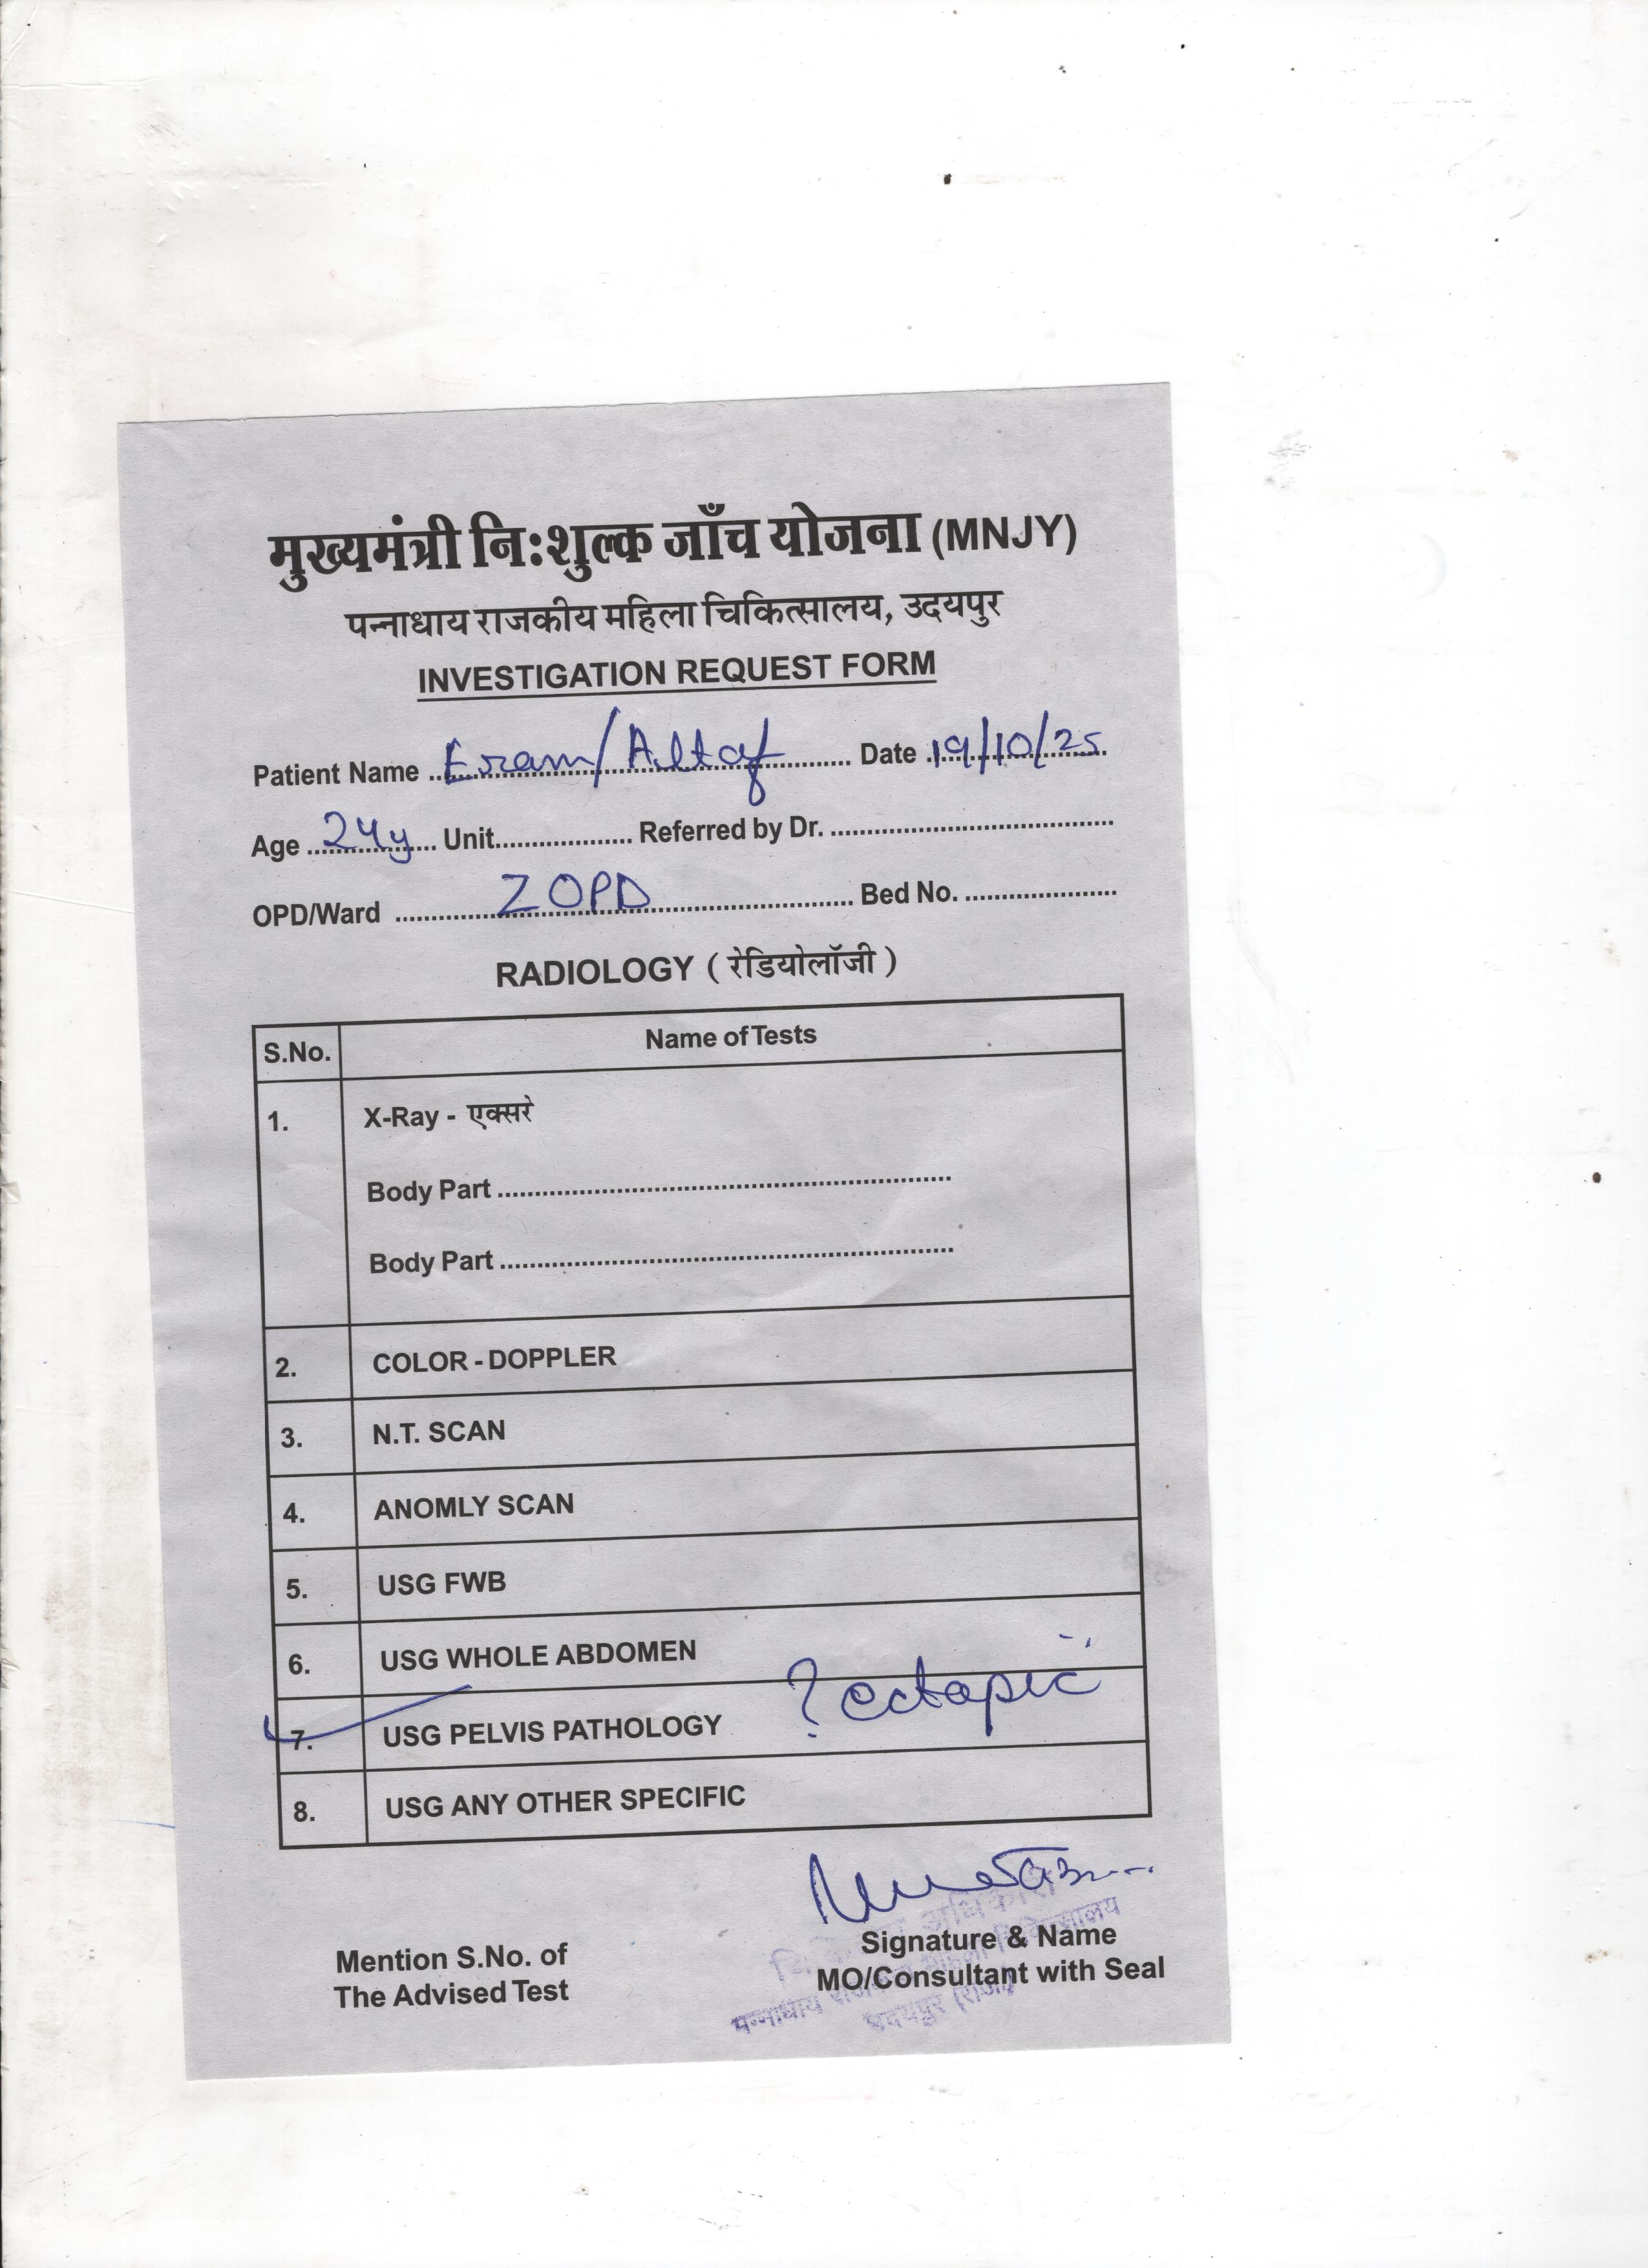 मुख्यमंत्री निःशुल्क जाँच योजना (MNJY)
पन्नाधाय राजकीय महिला चिकित्सालय, उदयपुर
INVESTIGATION REQUEST FORM
Patient Name Eram/Altaf Date 19/10/25
Age 24y Unit Referred by Dr.
OPD/Ward ZOPD Bed No.
RADIOLOGY ( रेडियोलॉजी )
S.No. Name of Tests
1. X-Ray - एक्सरे
Body Part
Body Part
2. COLOR - DOPPLER
3. N.T. SCAN
4. ANOMLY SCAN
5. USG FWB
6. USG WHOLE ABDOMEN
7. USG PELVIS PATHOLOGY ? ectopic
8. USG ANY OTHER SPECIFIC
Mention S.No. of
The Advised Test
Signature & Name
MO/Consultant with Seal
पन्नाधाय राजकीय महिला चिकित्सालय
उदयपुर (राज.)